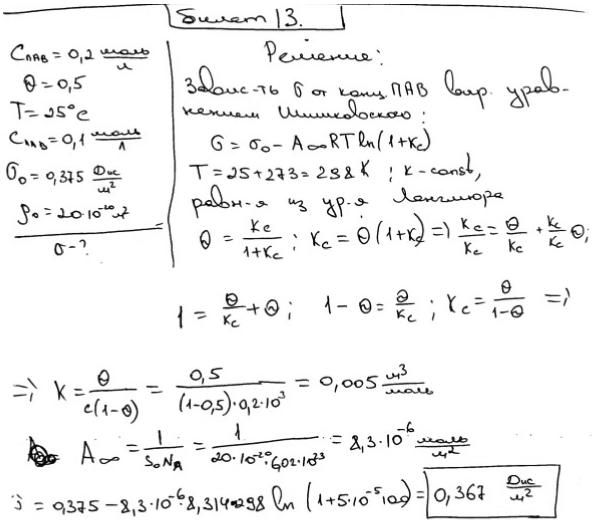 Билет 13.
C_ПАВ = 0,2 моль/л
Θ = 0,5
T = 25°C
C_ПАВ = 0,1 моль/л
σ₀ = 0,375 Дж/м²
S₀ = 20·10⁻²⁰ м²
σ - ?
Решение:
Завис-ть σ от конц. ПАВ выр. урав-
нением Шишковского:
σ = σ₀ - A∞RT ln(1+Kc)
T = 25 + 273 = 298 K ; K - const,
равн-я из ур-я Ленгмюра
Θ = Kc/(1+Kc) ; Kc = Θ(1+Kc) => Kc/Kc = Θ/Kc + Kc/Kc Θ;
1 = Θ/Kc + Θ ; 1 - Θ = Θ/Kc ; Kc = Θ/(1-Θ) =>
=> K = Θ/(c(1-Θ)) = 0,5/((1-0,5)·0,2·10³) = 0,005 м³/моль
A∞ = 1/(S₀N_A) = 1/(20·10⁻²⁰·6,02·10²³) = 8,3·10⁻⁶ моль/м²
= 0,375 - 8,3·10⁻⁶·8,314·298 ln (1+5·10⁻⁵·100) = 0,367 Дж/м²